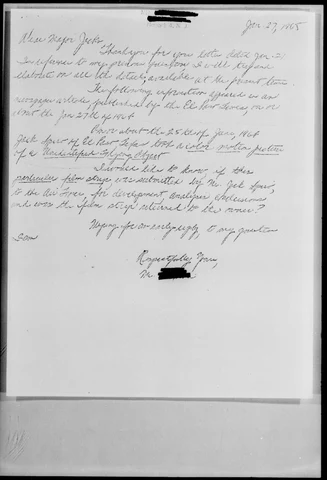 Jan 27, 1965
Dear Major Jacks
Thank you for your letter dated Jan-20
In reference to my previous question I will try and
elaborate on all the details available at the present time.
The following information appeared in an
newspaper article published by the El Paso Times, on or
about the Jan 27th of 1964
On or about the 25th of Jan, 1964
Jack of El Paso Texas took a color motion picture
of a Unidentified Flying Object
I would like to know if this
particular film strip was submitted by Mr. Jack
to the Air Force for development, analysis
and was the film strip returned to the owner?
Hoping for an early reply to my question
Soon
Respectfully Yours,
Mr